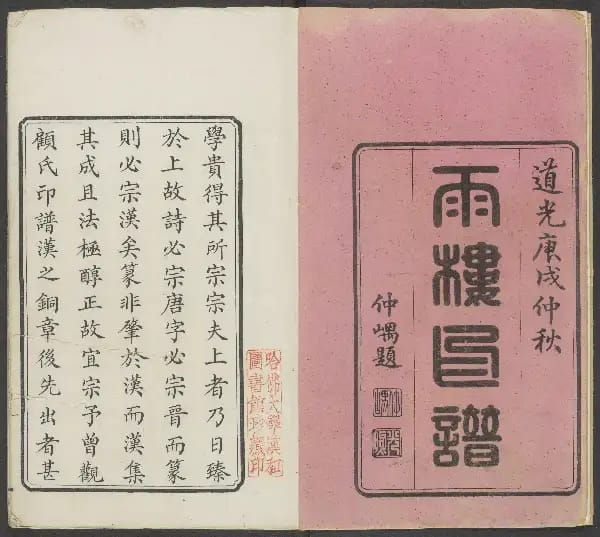 道光庚戌仲秋
雨樓印譜
仲嵎題
學貴得其所宗宗夫上者乃日臻
於上故詩必宗唐字必宗晉而篆
則必宗漢矣篆非肇於漢而漢集
其成且法極醇正故宜宗予曾觀
顧氏印譜漢之銅章後先出者甚
哈佛大學漢和
圖書館珍藏印